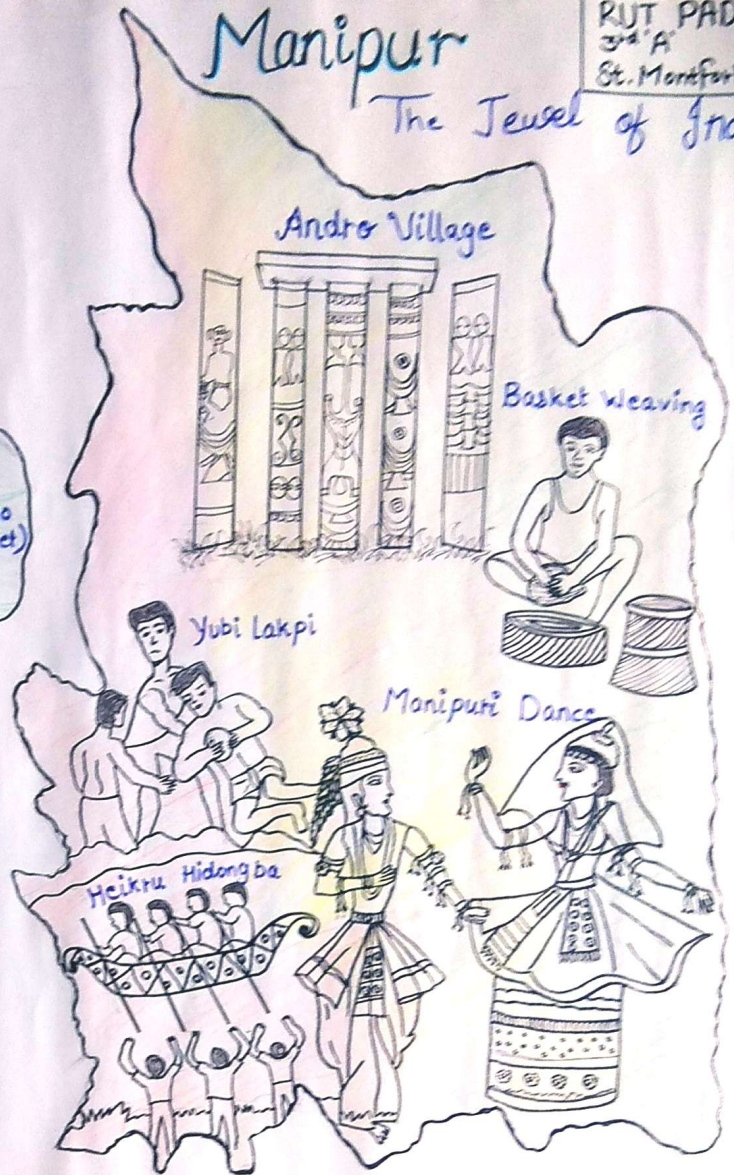 Manipur
RUT PAD
3rd 'A'
St. Montfor
The Jewel of Ind
Andro Village
Basket Weaving
o
et)
Yubi Lakpi
Manipuri Dance
Heikru Hidongba